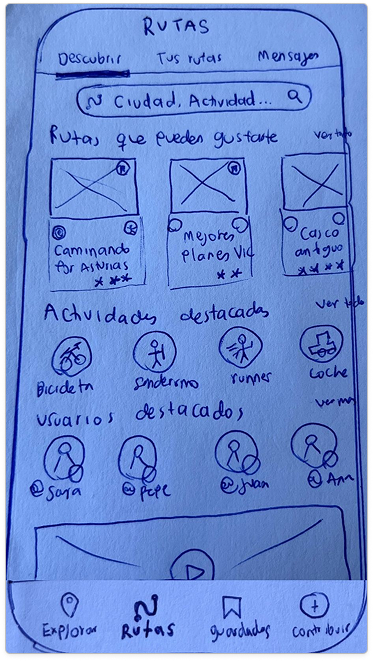 RUTAS
Descubrir Tus rutas Mensajes
Ciudad, Actividad...
Rutas que pueden gustarte ver todo
Caminando
Por Asturias
Mejores
Planes Vic
Casco
antiguo
Actividades destacadas Ver todo
Bicicleta Senderismo runner Coche
usuarios destacados ver mas
@Sara @Pepe @Juan @Ann
Explorar Rutas guardados Contribuir